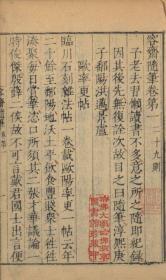 容齋隨筆卷第一 二十九則
予老去習懶讀書不多意之所之隨即紀錄
因其後先無復詮次故目之曰隨筆淳熙庚
子鄱陽洪邁景盧
歐率更帖
臨川石刻雜法帖一卷載歐陽率更一帖云年
二十餘至鄱陽地沃土平飲食豐賤衆士往往
湊聚每日賞華恣口所須其二張才華議論一
時俊傑殷薛二侯故不可言戴君國士出言便